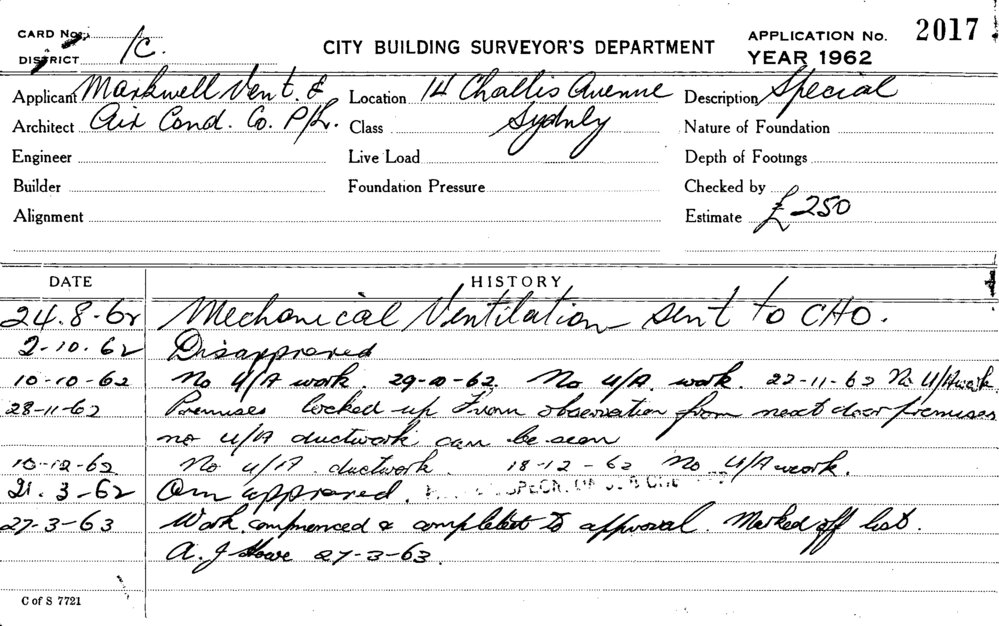 CARD No.
DISTRICT 1C.
CITY BUILDING SURVEYOR'S DEPARTMENT
APPLICATION No. 2017
YEAR 1962
Applicant Markwell Vent. & Location 14 Challis Avenue Description Special
Architect Air Cond. Co. P/L. Class Sydney Nature of Foundation
Engineer Live Load Depth of Footings
Builder Foundation Pressure Checked by
Alignment Estimate £250
DATE HISTORY
24.8.62 Mechanical Ventilation sent to CHO.
2-10.62 Disapproved
10-10-62 No U/A work. 29-10-62. No U/A. work. 22-11-62 No U/A work.
28-11-62 Premises locked up From observation from next door premises
no U/A ductwork can be seen
10-12-62 No U/A. ductwork. 18-12-62 No U/A work.
21.3-62 Om approved.
27-3-63 Work commenced & completed to approval. Marked off list.
A. J Howe 27-3-63.
C of S 7721